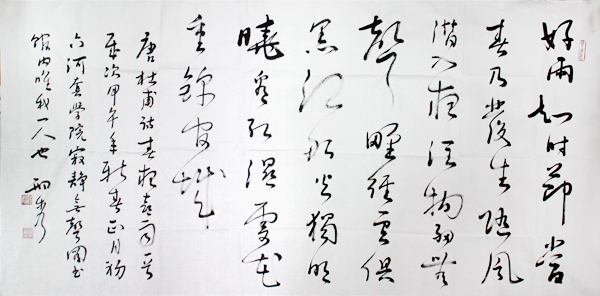 好雨知时節當
春乃發生随風
潜入夜潤物細無
聲野徑雲俱
黑江船火獨明
曉看紅濕處花
重錦官城
唐杜甫詩春夜喜雨
歲次甲午年新春正月初
六河套學院寂靜無聲圖書
館内唯我一人也